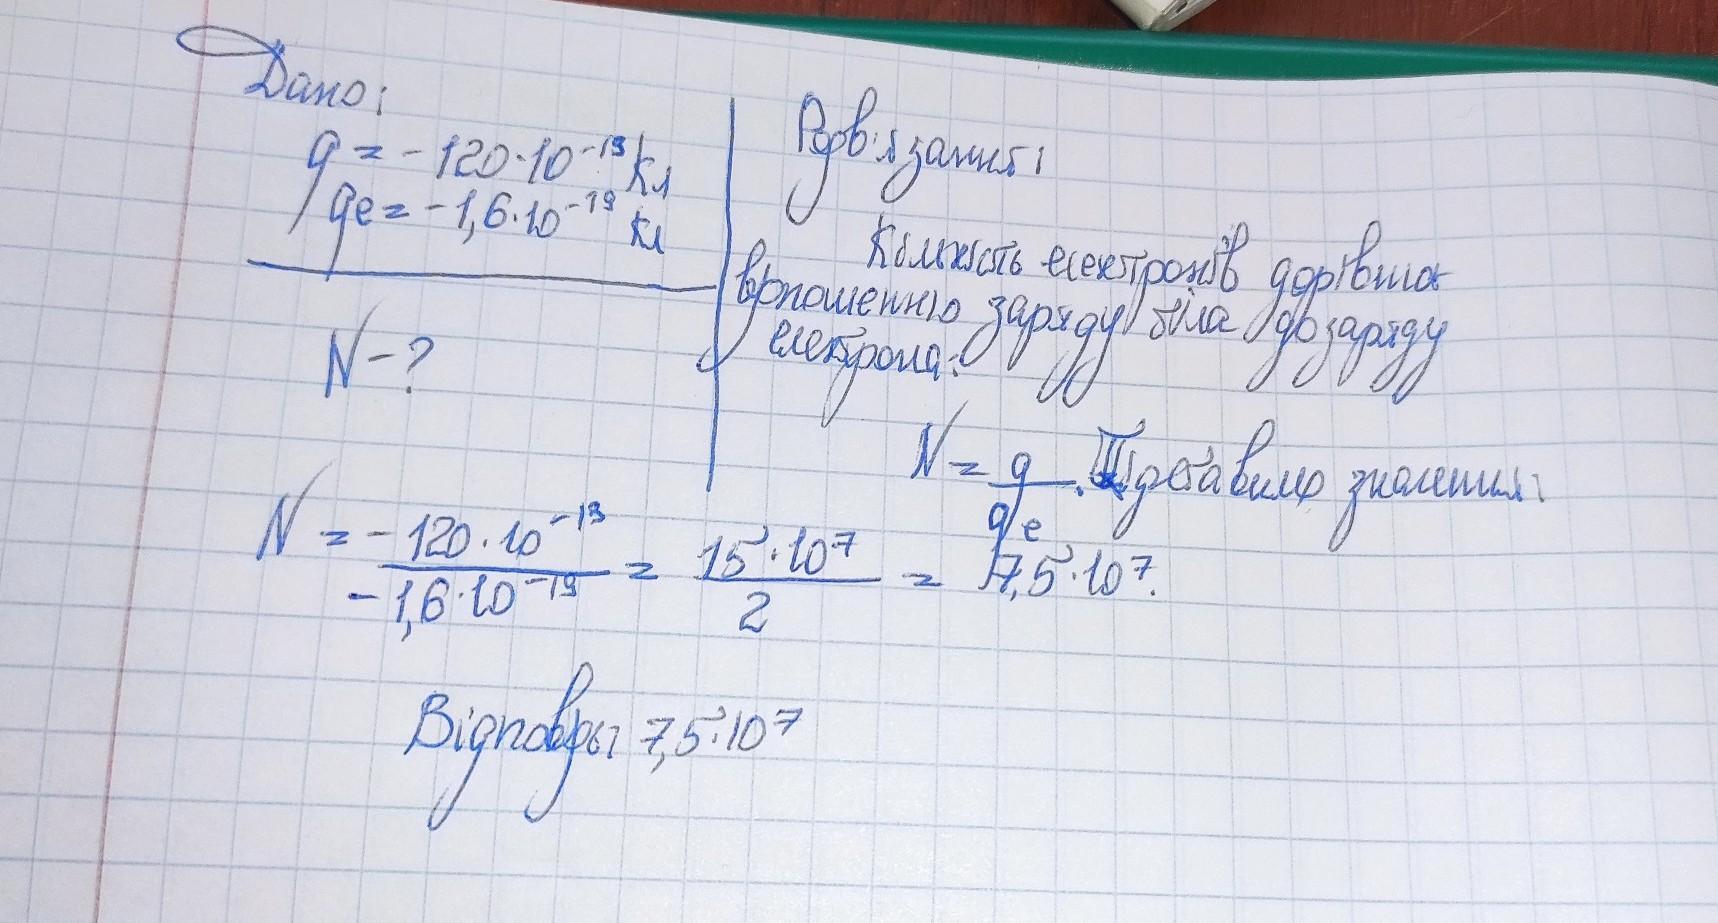 Дано:
q = -120·10⁻¹³ Кл
qe = -1,6·10⁻¹⁹ Кл
N - ?
Розв'язання:
Кількість електронів дорівнює
відношенню заряду тіла до заряду
електрона:
N = q/qe. Підставимо значення:
N = -120·10⁻¹³/-1,6·10⁻¹⁹ = 15·10⁷/2 = 7,5·10⁷.
Відповідь: 7,5·10⁷